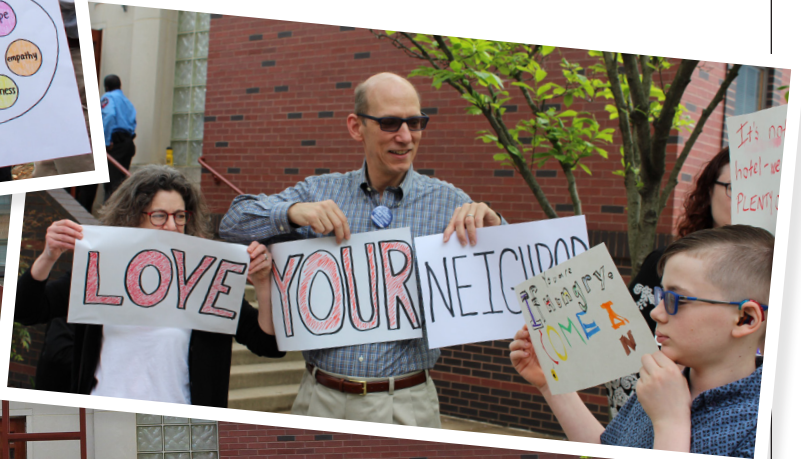 empathy
LOVE YOUR NEIGHBOR
If you're
hungry,
COME
IN
It's not
hotel-we
PLENTY